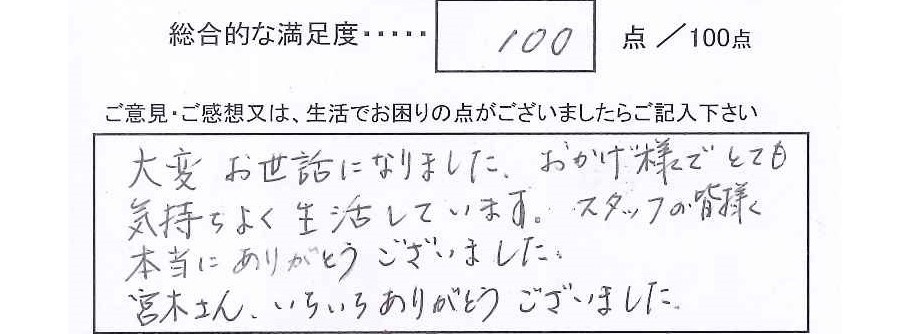 総合的な満足度・・・・・ 100 点 ／100点
ご意見・ご感想又は、生活でお困りの点がございましたらご記入下さい
大変 お世話になりました。おかげ様でとても
気持ちよく生活しています。スタッフの皆様
本当にありがとうございました。
宮木さん、いろいろありがとうございました。